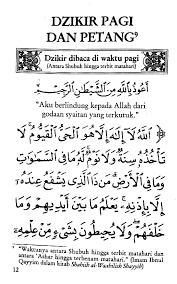 DZIKIR PAGI
DAN PETANG⁹
Dzikir dibaca di waktu pagi
(Antara Shubuh hingga terbit matahari)
أَعُوذُ بِاللَّهِ مِنَ الشَّيْطَانِ الرَّجِيْمِ
"Aku berlindung kepada Allah dari
godaan syaitan yang terkutuk."
اللَّهُ لَا إِلَٰهَ إِلَّا هُوَ الْحَيُّ الْقَيُّومُ ۚ لَا
تَأْخُذُهُ سِنَةٌ وَلَا نَوْمٌ ۚ لَهُ مَا فِي السَّمَاوَاتِ
وَمَا فِي الْأَرْضِ ۗ مَنْ ذَا الَّذِي يَشْفَعُ عِنْدَهُ
إِلَّا بِإِذْنِهِ ۚ يَعْلَمُ مَا بَيْنَ أَيْدِيهِمْ وَمَا
خَلْفَهُمْ ۖ وَلَا يُحِيطُونَ بِشَيْءٍ مِنْ
⁹ "Waktunya antara Shubuh hingga terbit matahari dan
antara 'Ashar hingga terbenam matahari." (Imam Ibnul
Qayyim dalam kitab Shahiih al-Waabilush Shayyib)
12